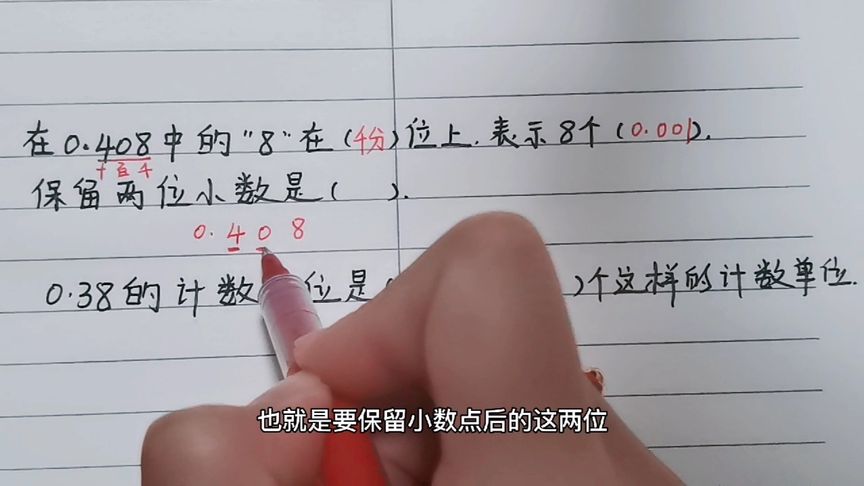 在0.408中的"8"在(千分)位上.表示8个(0.001).
十百千
保留两位小数是( ).
0.408
0.38的计数 位是( )个这样的计数单位.
也就是要保留小数点后的这两位